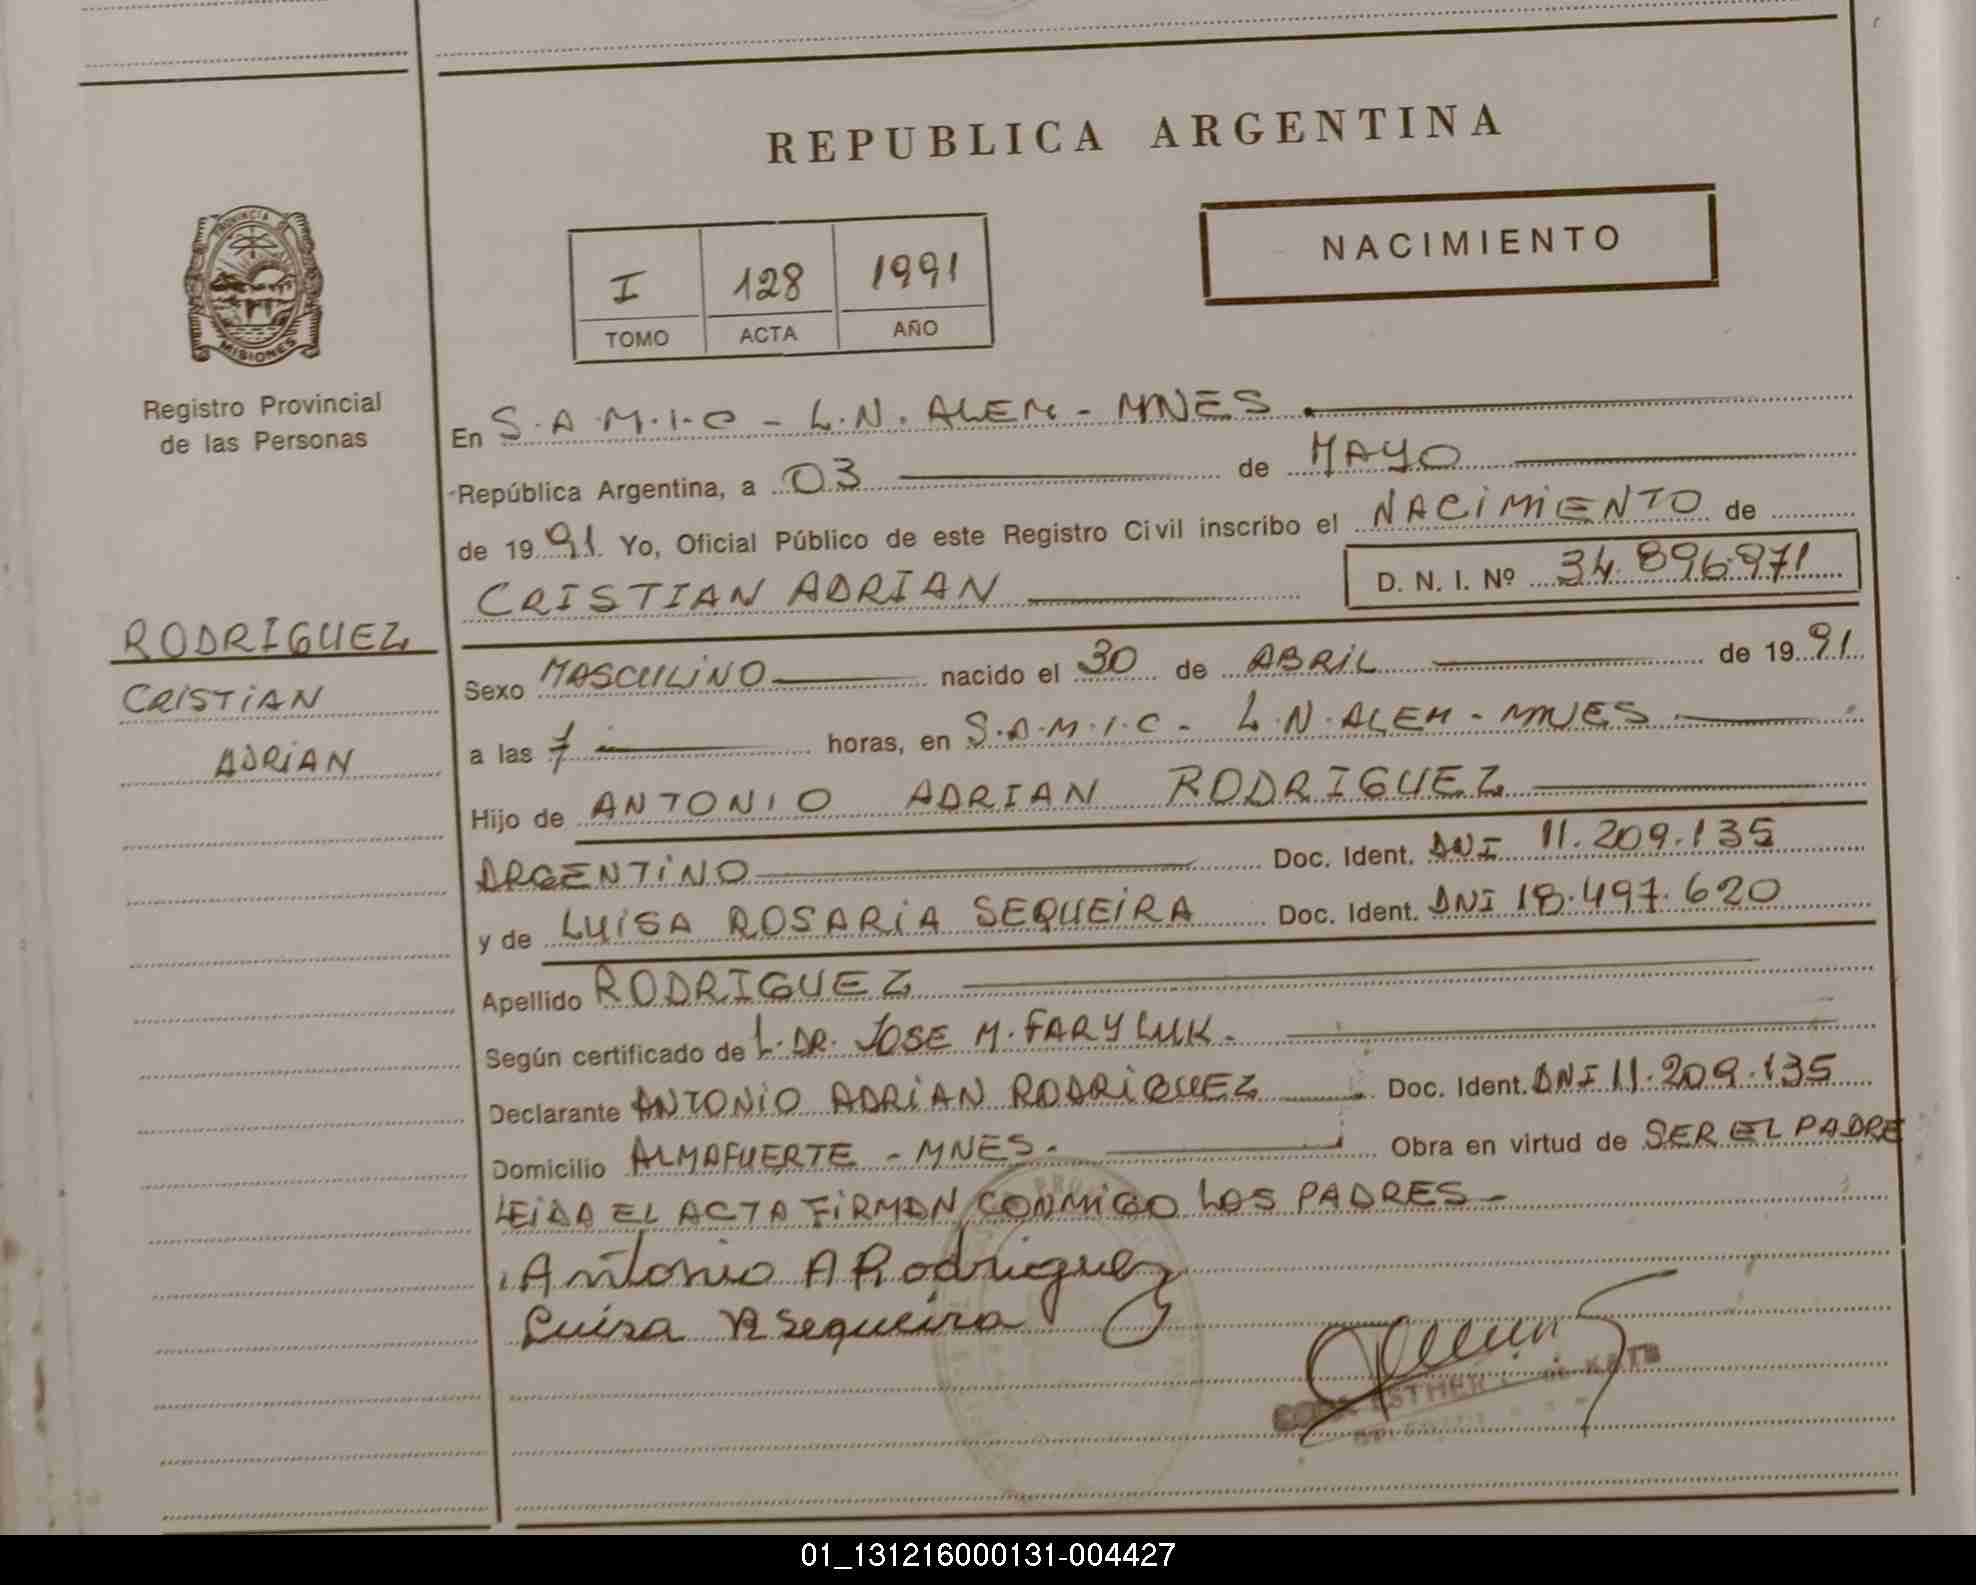 REPUBLICA ARGENTINA
PROVINCIA
MISIONES
Registro Provincial
de las Personas
I 128 1991
TOMO ACTA AÑO
NACIMIENTO
En S.A.M.I.C - L.N. ALEM - MNES.
República Argentina, a 03 de MAYO
de 1991 Yo, Oficial Público de este Registro Civil inscribo el NACIMIENTO de
CRISTIAN ADRIAN D. N. I. Nº 34.896.971
RODRIGUEZ
CRISTIAN
ADRIAN
Sexo MASCULINO nacido el 30 de ABRIL de 1991
a las 7 horas, en S.A.M.I.C - L.N. ALEM - MNES
Hijo de ANTONIO ADRIAN RODRIGUEZ
ARGENTINO Doc. Ident. DNI 11.209.135
y de LUISA ROSARIA SEQUEIRA Doc. Ident. DNI 18.497.620
Apellido RODRIGUEZ
Según certificado de L. DR. JOSE M. FARYLUK.
Declarante ANTONIO ADRIAN RODRIGUEZ Doc. Ident. DNI 11.209.135
Domicilio ALMAFUERTE - MNES. Obra en virtud de SER EL PADRE
LEIDA EL ACTA FIRMAN CONMIGO LOS PADRES -
Antonio A Rodriguez
Luisa R Sequeira
ESTHER
01_131216000131-004427